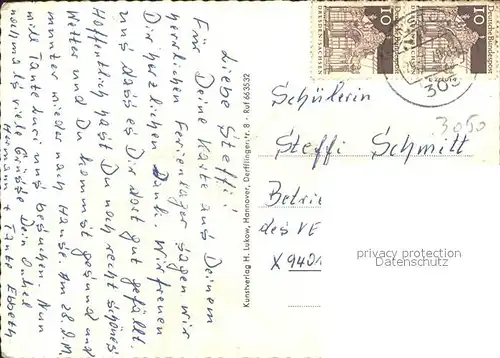 Liebe Steffi!
Für Deine Karte aus Deinem
herrlichen Ferienlager sagen wir
Dir herzlichen Dank. Wir freuen
uns dass es Dir dort gut gefällt.
Hoffentlich hast Du noch recht schönes
Wetter und Du kommst gesund und
munter wieder nach Hause. Am 28. d.M.
will Tante Luci uns besuchen. Nun
nochmals viele Grüsse Dein Onkel
Hermann + Tante Elsbeth
Kunstverlag H. Lukow, Hannover, Derfflingerstr. 8 · Ruf 663532
10
DRESDEN-SACHSEN
10
305
3050
Schülerin
Steffi Schmitt
Betrie
des VE
X 9401
privacy protection
Datenschutz